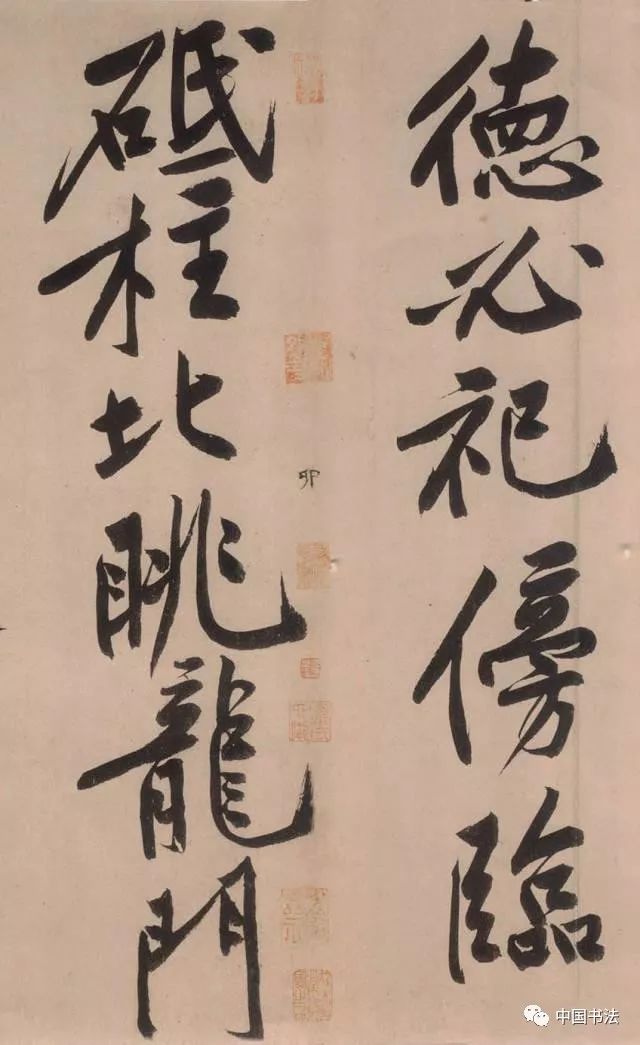 德必祀傍臨
砥柱北眺龍門
卯
中国书法